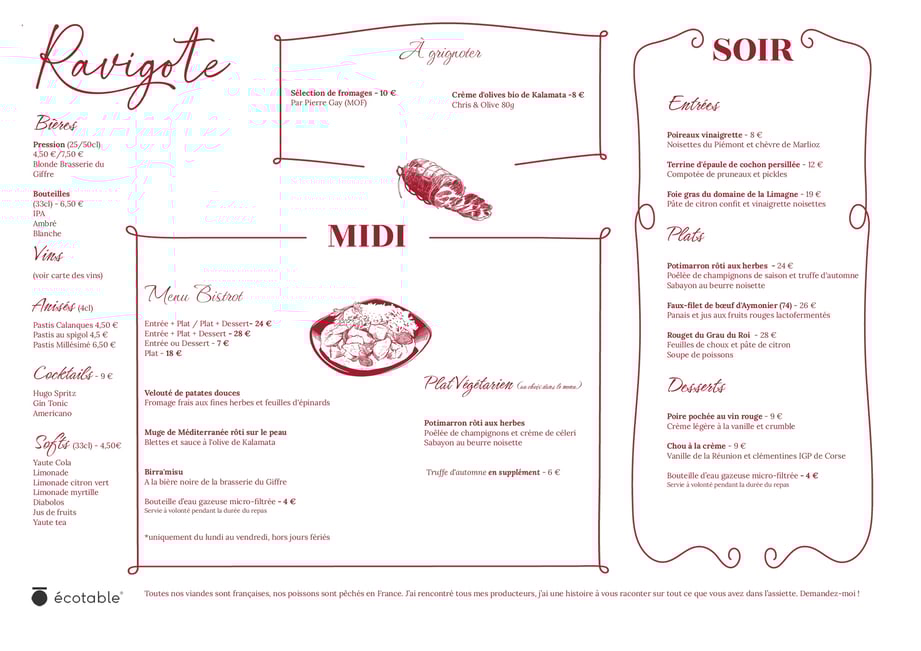 Ravigote
Bières
Pression (25/50cl)
4,50 €/7,50 €
Blonde Brasserie du
Giffre
Bouteilles
(33cl) - 6,50 €
IPA
Ambré
Blanche
Vins
(voir carte des vins)
Anisés (4cl)
Pastis Calanques 4,50 €
Pastis au spigol 4,5 €
Pastis Millésimé 6,50 €
Cocktails - 9 €
Hugo Spritz
Gin Tonic
Americano
Softs (33cl) - 4,50€
Yaute Cola
Limonade
Limonade citron vert
Limonade myrtille
Diabolos
Jus de fruits
Yaute tea
À grignoter
Sélection de fromages - 10 €
Par Pierre Gay (MOF)
Crème d'olives bio de Kalamata -8 €
Chris & Olive 80g
MIDI
Menu Bistrot
Entrée + Plat / Plat + Dessert- 24 €
Entrée + Plat + Dessert - 28 €
Entrée ou Dessert - 7 €
Plat - 18 €
Velouté de patates douces
Fromage frais aux fines herbes et feuilles d'épinards
Muge de Méditerranée rôti sur le peau
Blettes et sauce à l'olive de Kalamata
Birra'misu
A la bière noire de la brasserie du Giffre
Bouteille d'eau gazeuse micro-filtrée - 4 €
Servie à volonté pendant la durée du repas
*uniquement du lundi au vendredi, hors jours fériés
Plat Végétarien (au choix dans le menu)
Potimarron rôti aux herbes
Poêlée de champignons et crème de céleri
Sabayon au beurre noisette
Truffe d'automne en supplément - 6 €
SOIR
Entrées
Poireaux vinaigrette - 8 €
Noisettes du Piémont et chèvre de Marlioz
Terrine d'épaule de cochon persillée - 12 €
Compotée de pruneaux et pickles
Foie gras du domaine de la Limagne - 19 €
Pâte de citron confit et vinaigrette noisettes
Plats
Potimarron rôti aux herbes - 24 €
Poêlée de champignons de saison et truffe d'automne
Sabayon au beurre noisette
Faux-filet de bœuf d'Aymonier (74) - 26 €
Panais et jus aux fruits rouges lactofermentés
Rouget du Grau du Roi - 28 €
Feuilles de choux et pâte de citron
Soupe de poissons
Desserts
Poire pochée au vin rouge - 9 €
Crème légère à la vanille et crumble
Chou à la crème - 9 €
Vanille de la Réunion et clémentines IGP de Corse
Bouteille d'eau gazeuse micro-filtrée - 4 €
Servie à volonté pendant la durée du repas
écotable®
Toutes nos viandes sont françaises, nos poissons sont pêchés en France. J'ai rencontré tous mes producteurs, j'ai une histoire à vous raconter sur tout ce que vous avez dans l'assiette. Demandez-moi !